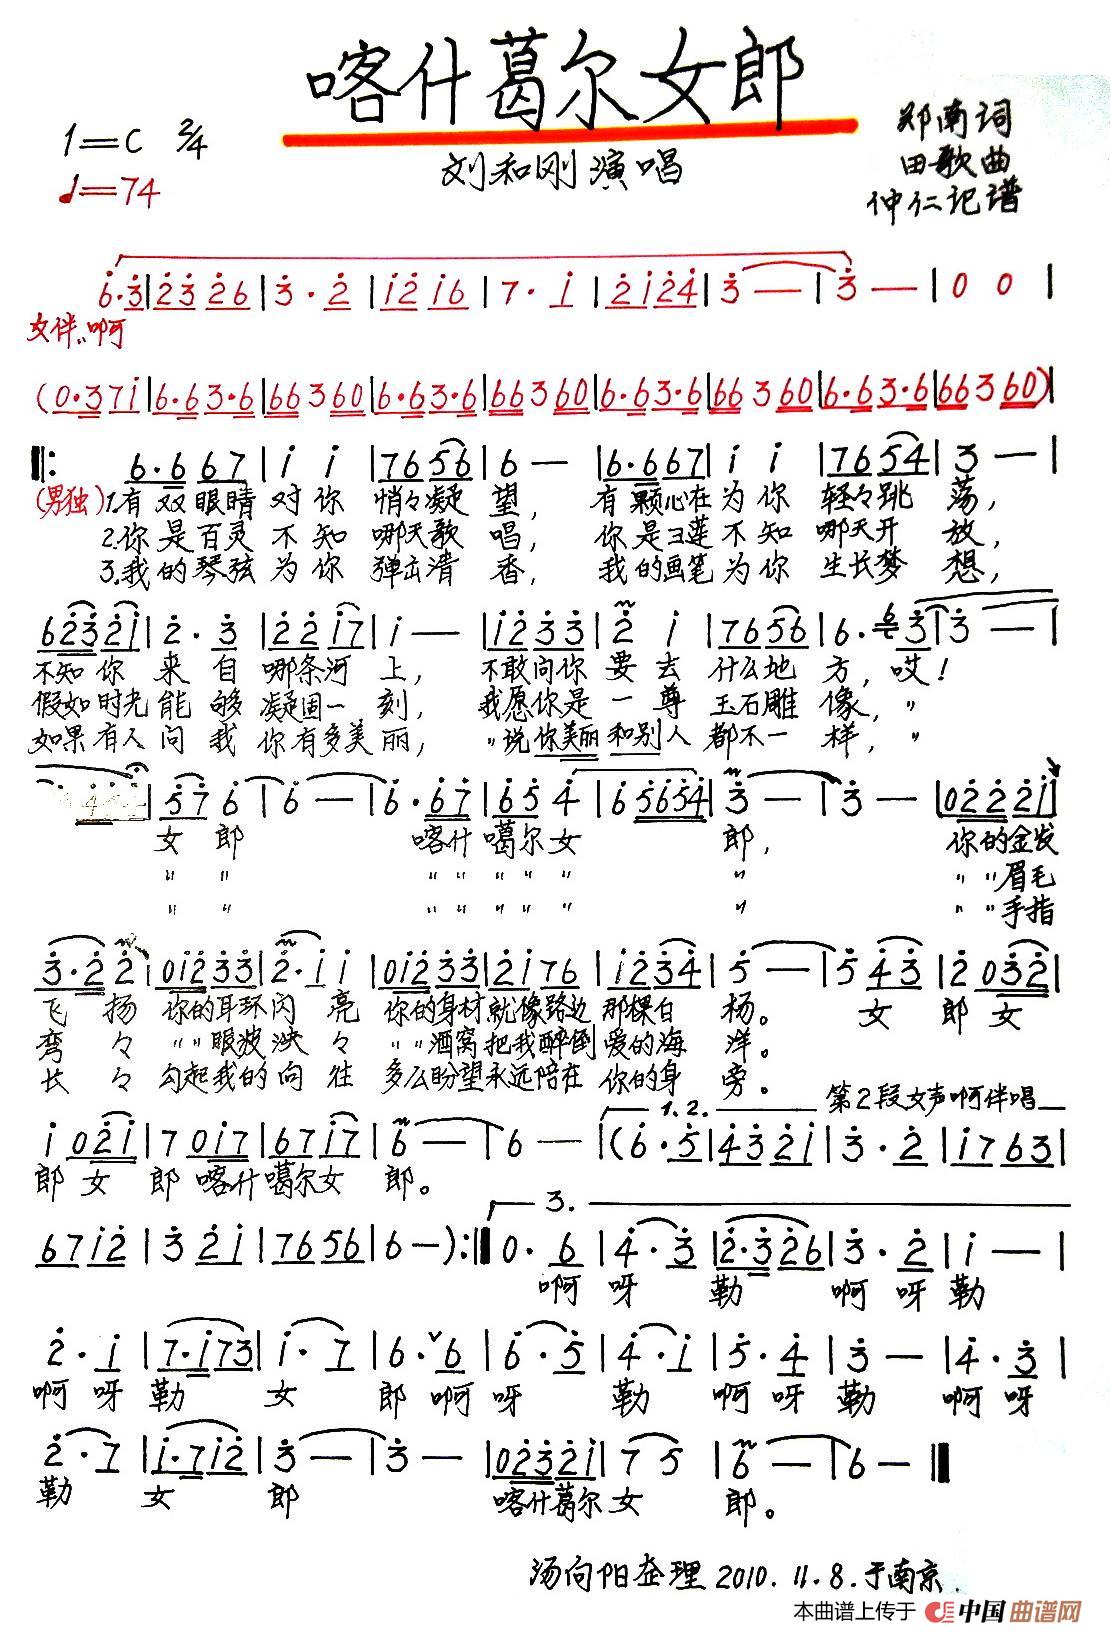 喀什葛尔女郎
1=C 2/4
♩=74
刘和刚演唱
郑南词
田歌曲
仲仁记谱
6·3|23 26|3·2|12 16|7·1|21 24|3—|3—|0 0|
女伴..啊
(0·3 71|6·6 3·6|66 3 60|6·6 3·6|66 3 60|6·6 3·6|66 3 60|6·6 3·6|66 3 60)
‖: 6·6 67|1 1|76 56|6—|6·6 67|1 1|76 54|3—|
(男独)1.有双眼睛对你悄々凝望，有颗心在为你轻々跳荡，
2.你是百灵不知哪天歌唱，你是雪莲不知哪天开放，
3.我的琴弦为你弹击清香，我的画笔为你生长梦想，
6 23 21|2·3|22 17|1—|12 33|2 1|76 56|6·6 3|3—
不知你来自哪条河上，不敢问你要去什么地方，哎！
假如时光能够凝固一刻，我愿你是一尊玉石雕像，〃
如果有人问我你有多美丽，〃说你美丽和别人都不一样，〃
4|57 6|6—|6·67|65 4|65654|3—|3—|022 21|
女郎 喀什葛尔女郎，你的金发
〃 〃 〃 〃 〃 〃 〃 〃 〃 〃眉毛
〃 〃 〃 〃 〃 〃 〃 〃 〃 〃手指
3·2 2|012 33|2·1 1|012 33|21 76|12 34|5—|5 43|2 032|
飞扬 你的耳环闪亮 你的身材就像路边那棵白杨。女郎女
弯々 〃〃眼波泱々 〃〃酒窝把我醉倒爱的海洋。
长々 勾起我的向往 多么盼望永远陪在你的身旁。
1.2. 第2段女声啊伴唱
1 021|7 017|67 17|6—|6—|(6·5|43 21|3·2|17 63|
郎女郎喀什葛尔女郎。
3.
67 12|3 21|76 56|6—):‖0·6|4·3|2·3 26|3·2|1—|
啊呀勒 啊呀勒
2·1|7·1 73|1·7|6·6|6·5|4·1|5·4|3—|4·3|
啊呀勒 女 郎啊呀 勒 啊呀勒 啊呀
2·7|1·7 12|3—|3—|023 21|7 5|6—|6—‖
勒 女 郎 喀什葛尔女 郎。
汤向阳整理 2010.11.8.于南京.
本曲谱上传于 中国曲谱网